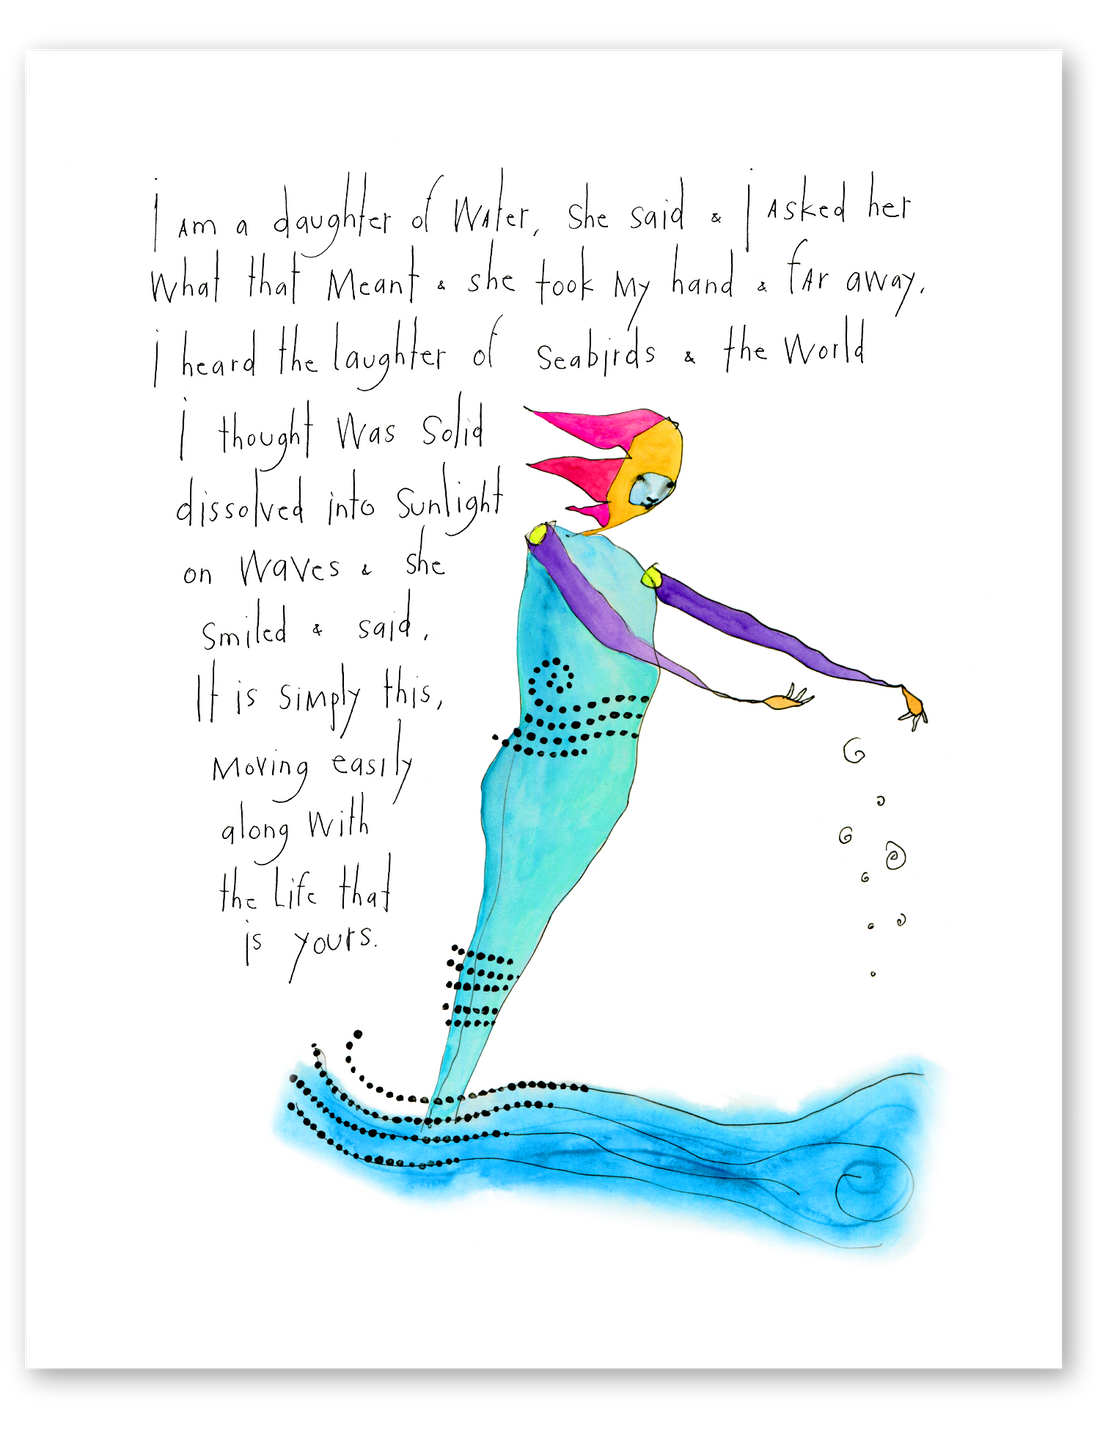 i am a daughter of Water, she said & i asked her
what that Meant & she took My hand & far away,
i heard the laughter of seabirds & the World
i thought Was solid
dissolved into Sunlight
on Waves & she
smiled & said,
It is simply this,
Moving easily
along With
the Life that
is yours.